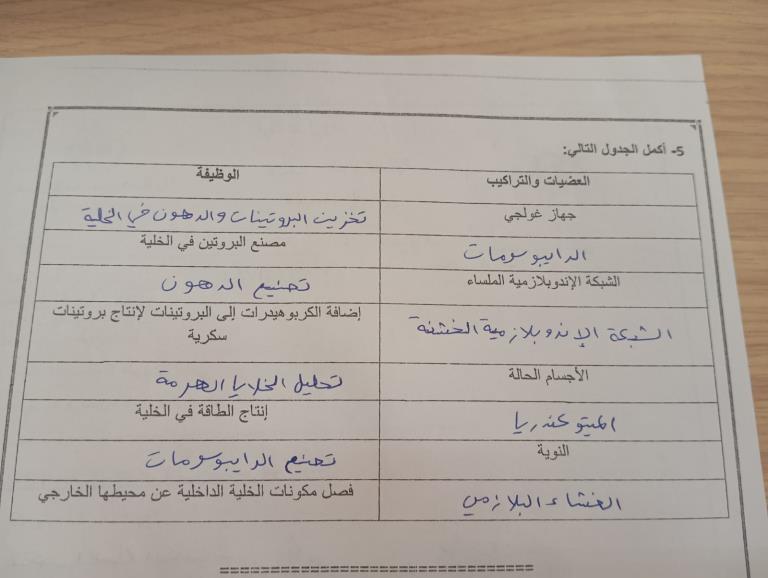 5- أكمل الجدول التالي:
العضيات والتراكيب	الوظيفة
جهاز غولجي	تخزين البروتينات والدهون في الخلية
الرايبوسومات	مصنع البروتين في الخلية
الشبكة الإندوبلازمية الملساء	تصنيع الدهون
الشبكة الإندوبلازمية الخشنة	إضافة الكربوهيدرات إلى البروتينات لإنتاج بروتينات
سكرية
الأجسام الحالة	تحليل الخلايا الهرمة
الميتوكندريا	إنتاج الطاقة في الخلية
النوية	تصنيع الرايبوسومات
الغشاء البلازمي	فصل مكونات الخلية الداخلية عن محيطها الخارجي